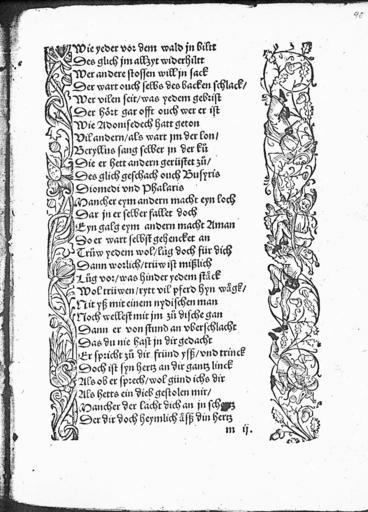 90
Wie yeder vor dem wald in billt
Des glich jm allzyt widerhillt
Wer andere stossen will jn sack
Der wart ouch selbs des backen schlack/
Wer vilen seit/was yedem gebrist
Der hört gar offt ouch wer er ist
Wie Adonisedech hatt geton
Vil andern/als wart jm der lon/
Beryllus sang selber jn der kü
Die er hett andern gerüstet zů/
Des glich geschach ouch Busyris
Diomedi vnd Phalaris
Mancher eym andern macht eyn loch
Dar jn er selber fallet doch
Eyn galg eym andern macht Aman
Do er wart selbst gehencket an
Trüw yedem wol/lůg doch für dich
Dann worlich/trüw ist mißlich
Lůg vor/was hinder yedem stäck
Wol trüwen/rytt vil pferd hyn wäg/
Nit yß mit einem nydischen man
Noch wellest mit jm zů dische gan
Dann er von stund an vberschlacht
Das du nie hast jn dir gedacht
Er spricht zů dir fründ yß/vnd trinck
Doch ist syn hertz an dir gantz linck
Als ob er sprech/wol günd ichs dir
Als hetts ein dieb gestolen mir/
Mancher der lacht dich an jn
Der dir doch heymlich äß din hertz
m ij.